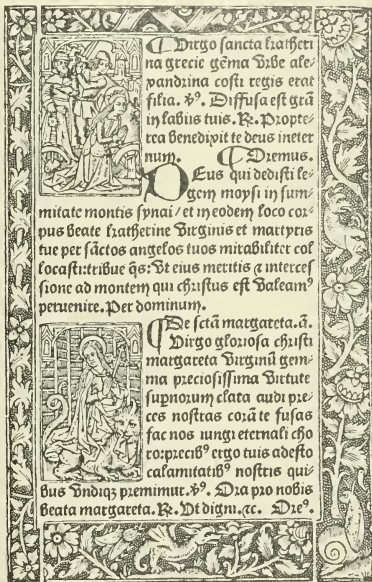 ℣Virgo sancta katheri⸗
na grecie gēma Vrbe ale⸗
xandrina costi regis erat
filia. ℣. Diffusa est grā
in labiis tuis. R. Propte⸗
rea benedixit te deus in eter
num. Oremus.
DEus qui dedisti le⸗
gem moysi in sum⸗
mitate montis synai / et in eodem loco cor⸗
pus beate katherine Virginis et martyris
tue per sāctos angelos tuos mirabiliter col
locasti: tribue q̄s: Vt eius meritis ⁊ interces
sione ad montem qui christus est Valeamꝰ
peruenire. Per dominum.
De sctā margareta. ā.
Virgo gloriosa christi
margareta Virginū gem⸗
ma preciosissima Virtute
supnorum clata audi pre⸗
ces nostras corā te fusas
fac nos iungi eternali cho
ro: precibꝰ ergo tuis adesto
calamitatibꝰ nostris qui⸗
bus Vndiqꝫ premimur. ℣. Ora pro nobis
beata margareta. R. Vt digni. ⁊c. Oreꝰ.